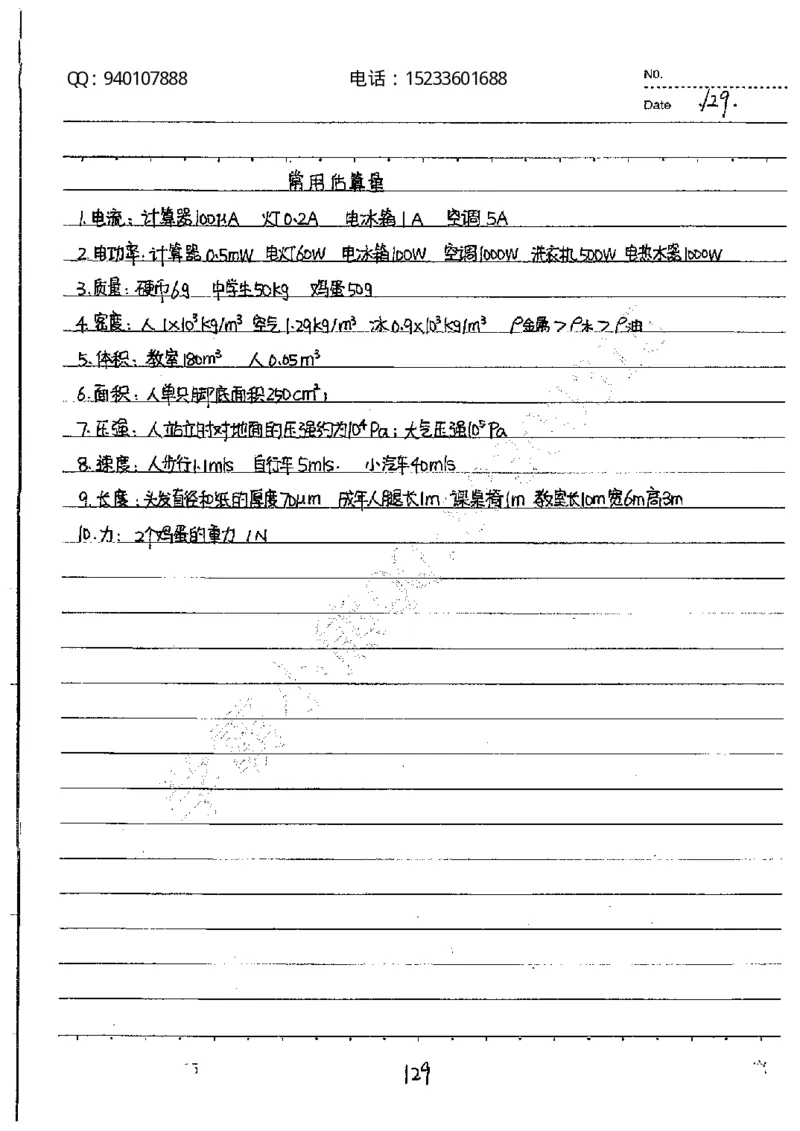 QQ：940107888 电话：15233601688 NO.
Date 129.
常用估算量
1.电流：计算器100μA 灯0.2A 电冰箱1A 空调5A
2.电功率：计算器0.5mW 电灯60W 电冰箱100W 空调1000W 洗衣机500W 电热水器1000W
3.质量：硬币6g 中学生50kg 鸡蛋50g
4.密度：人1×10³kg/m³ 空气1.29kg/m³ 冰0.9×10³kg/m³ ρ金属＞ρ水＞ρ油
5.体积：教室180m³ 人0.05m³
6.面积：人单只脚底面积250cm²；
7.压强：人站立时对地面的压强约为10⁴Pa；大气压强10⁵Pa
8.速度：人步行1.1m/s 自行车5m/s. 小汽车40m/s
9.长度：头发直径和纸的厚度70μm 成年人腿长1m 课桌椅1m 教室长10m宽6m高3m
10.力：2个鸡蛋的重力1N
129